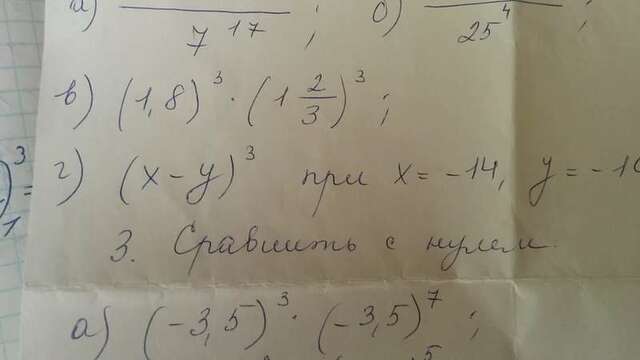 7^17 ; б) 25^4 ;
в) (1,8)^3 · (1 2/3)^3 ;
г) (x - y)^3 при x = -14, y = -1
3. Сравнить с нулем.
а) (-3,5)^3 · (-3,5)^7 ;